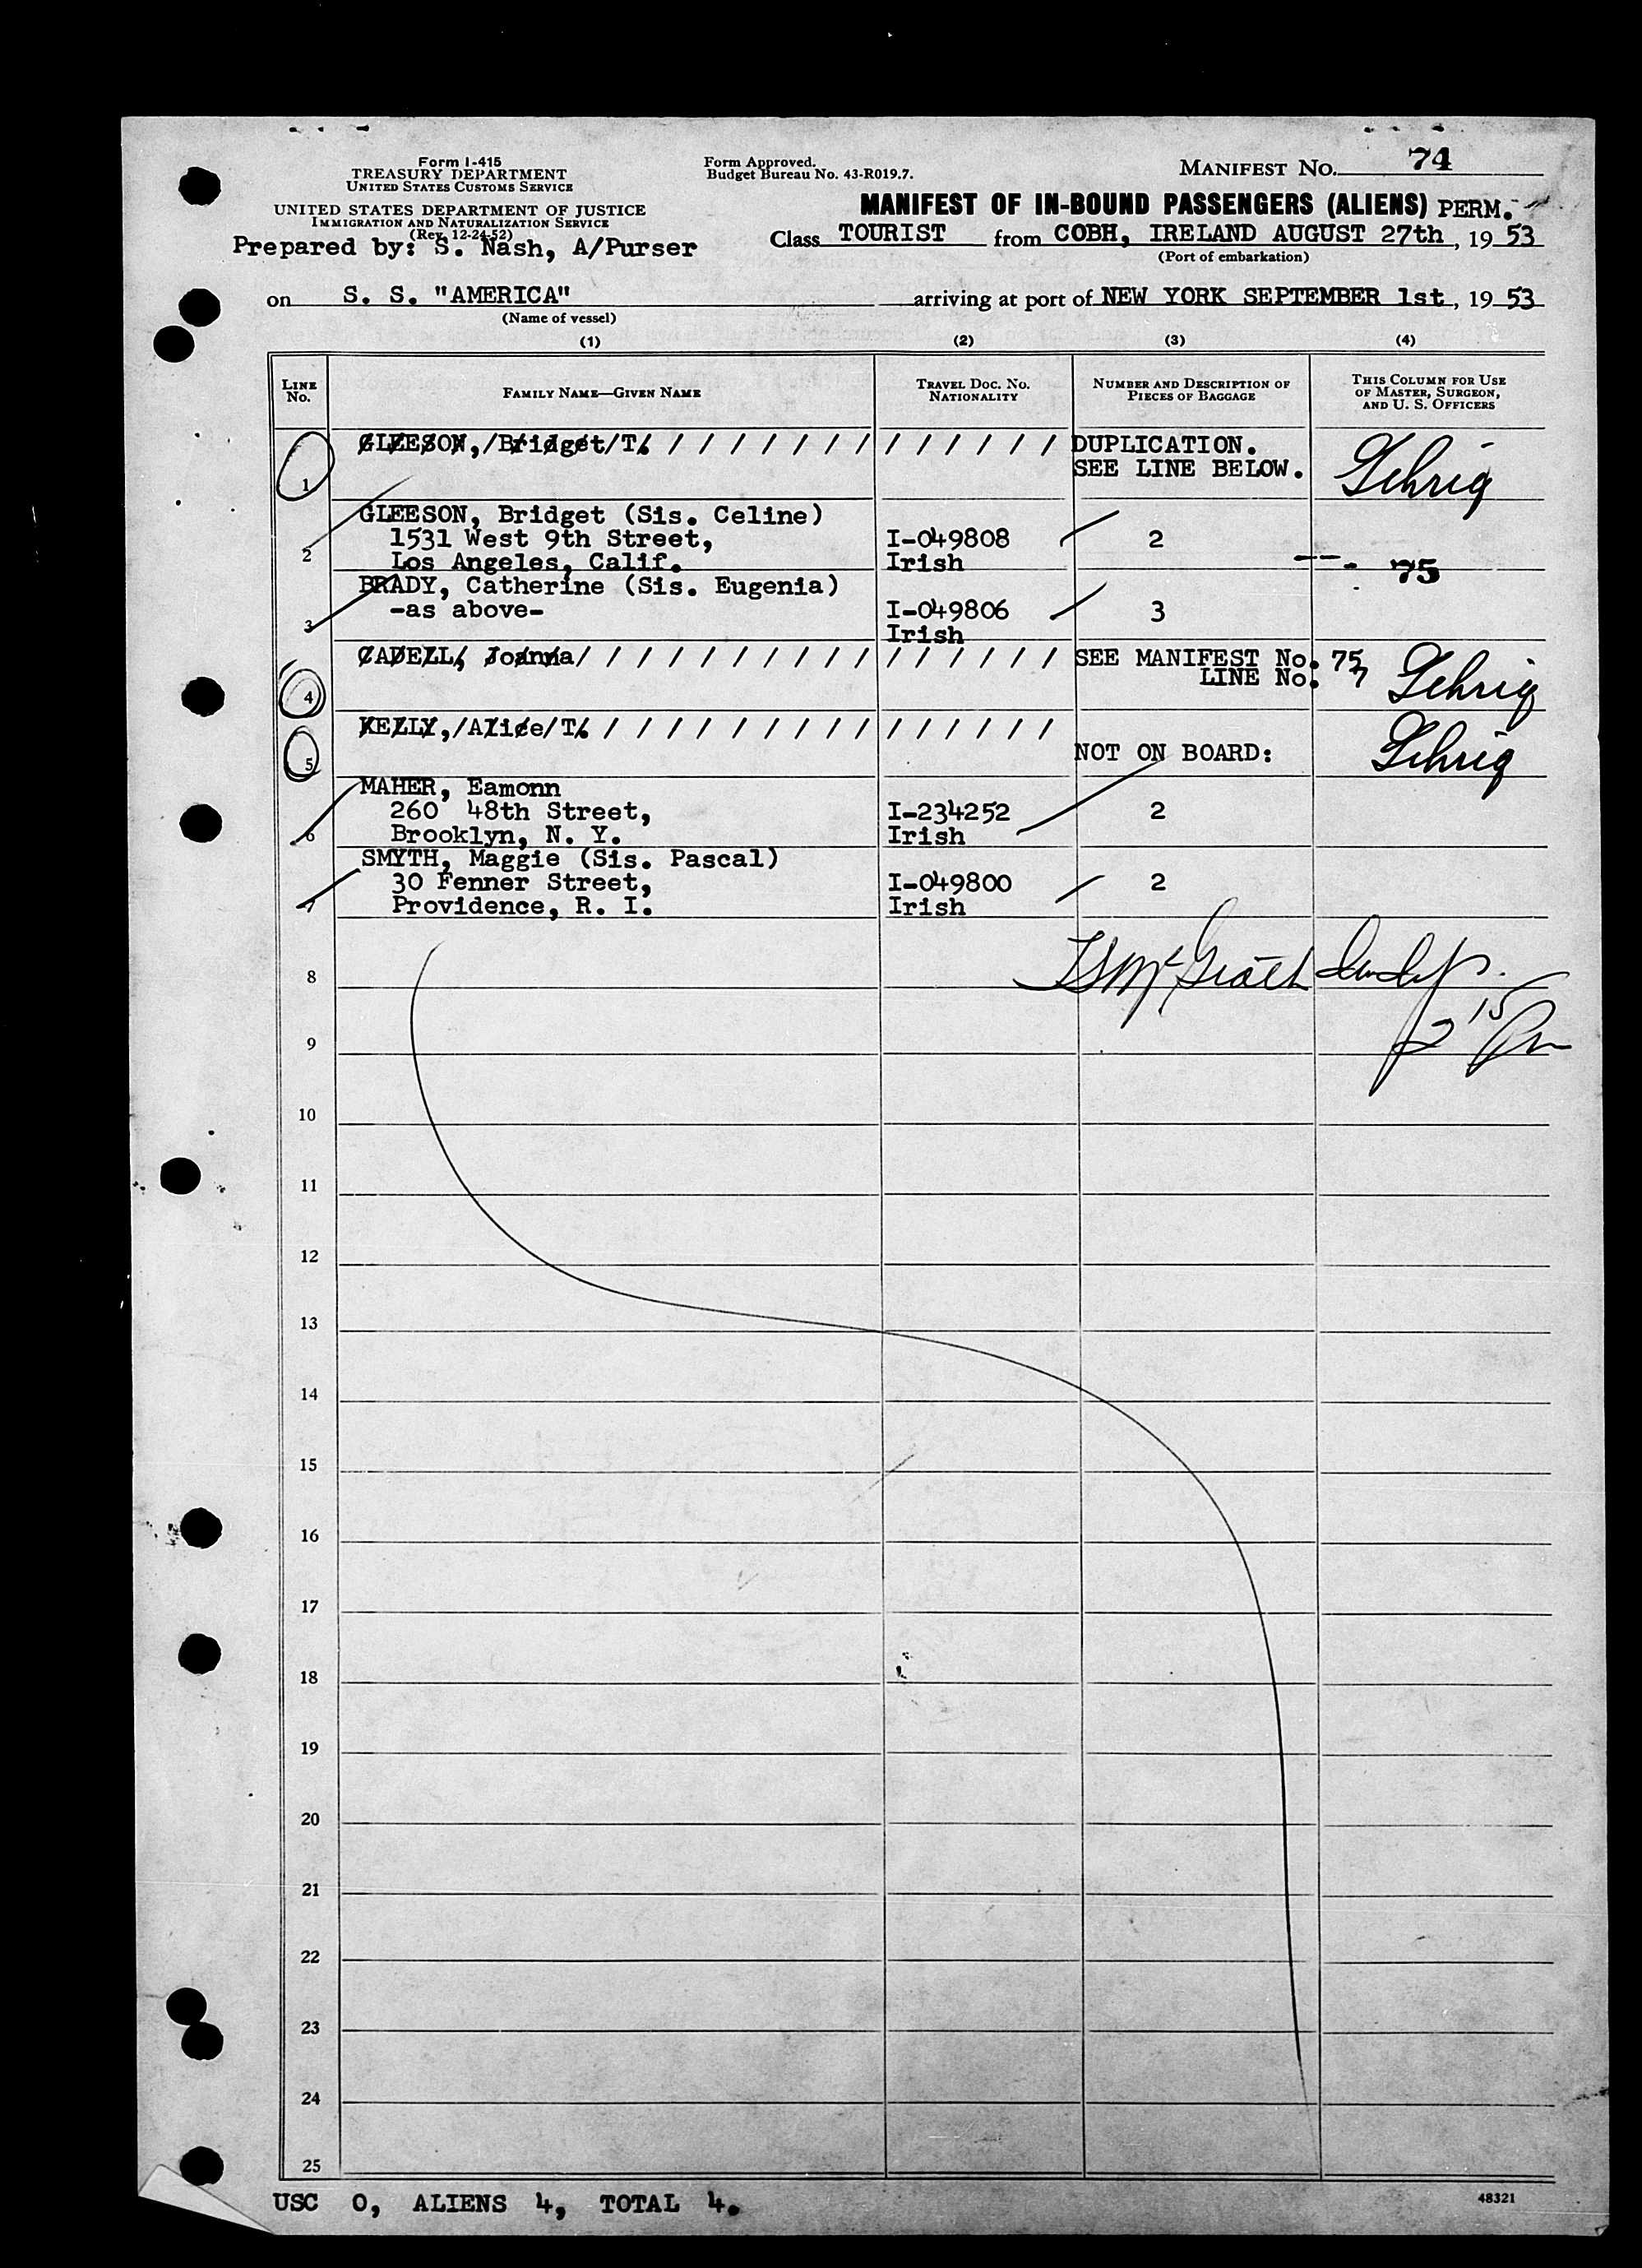 Form I-415
TREASURY DEPARTMENT
UNITED STATES CUSTOMS SERVICE
UNITED STATES DEPARTMENT OF JUSTICE
IMMIGRATION AND NATURALIZATION SERVICE
(Rev. 12-24-52)
Prepared by: S. Nash, A/Purser
Form Approved.
Budget Bureau No. 43-R019.7.
MANIFEST No. 74
MANIFEST OF IN-BOUND PASSENGERS (ALIENS) PERM.
Class TOURIST from COBH, IRELAND AUGUST 27th, 19 53
(Port of embarkation)
on S. S. "AMERICA" arriving at port of NEW YORK SEPTEMBER 1st, 19 53
(Name of vessel)
(1) (2) (3) (4)
LINE No. FAMILY NAME—GIVEN NAME TRAVEL DOC. NO. NATIONALITY NUMBER AND DESCRIPTION OF PIECES OF BAGGAGE THIS COLUMN FOR USE OF MASTER, SURGEON, AND U. S. OFFICERS
GLEESON,/Bridget/T. / / / / / / / / / / / / / / DUPLICATION.
1 SEE LINE BELOW. Gehrig
GLEESON, Bridget (Sis. Celine)
2 1531 West 9th Street, I-049808 2
Los Angeles, Calif. Irish 75
BRADY, Catherine (Sis. Eugenia)
3 -as above- I-049806 3
Irish
CADELL, Joanna/ / / / / / / / / / / / / / / / / SEE MANIFEST No. 75
4 LINE No. 7 Gehrig
KELLY,/Alice/T. / / / / / / / / / / / / / / / /
5 NOT ON BOARD: Gehrig
MAHER, Eamonn
260 48th Street, I-234252 2
6 Brooklyn, N. Y. Irish
SMYTH, Maggie (Sis. Pascal)
30 Fenner Street, I-049800 2
7 Providence, R. I. Irish
8 McGrath
9 2 15 Pm
10
11
12
13
14
15
16
17
18
19
20
21
22
23
24
25
USC 0, ALIENS 4, TOTAL 4.
48321